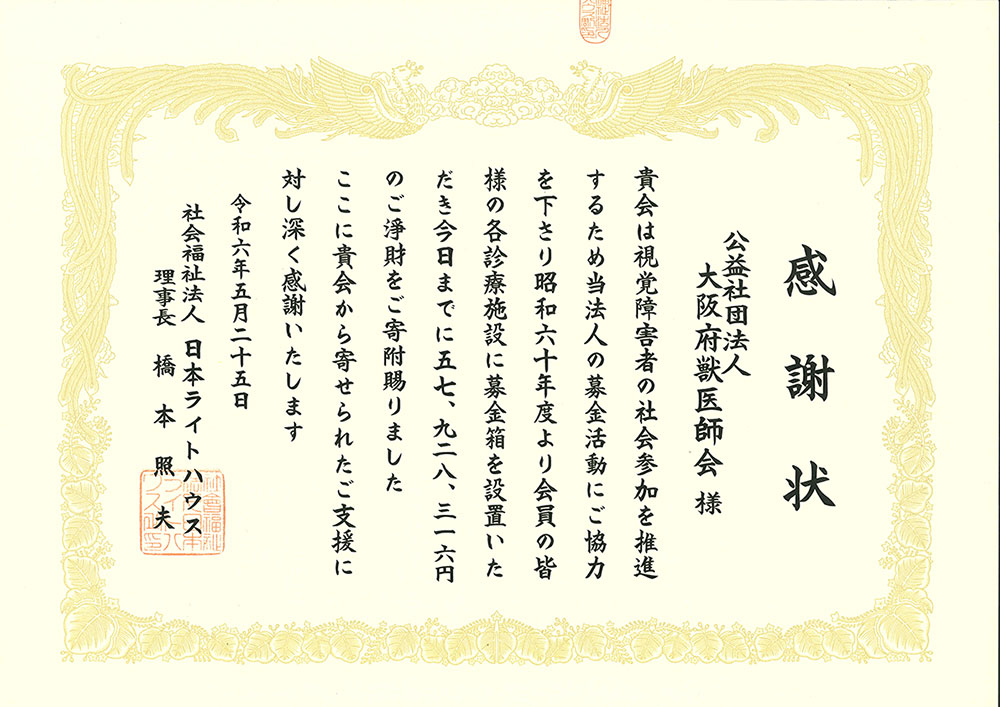 感謝状
公益社団法人
大阪府獣医師会 様
貴会は視覚障害者の社会参加を推進
するため当法人の募金活動にご協力
を下さり昭和六十年度より会員の皆
様の各診療施設に募金箱を設置いた
だき今日までに五七、九二八、三一六円
のご浄財をご寄附賜りました
ここに貴会から寄せられたご支援に
対し深く感謝いたします
令和六年五月二十五日
社会福祉法人 日本ライトハウス
理事長 橋本照夫